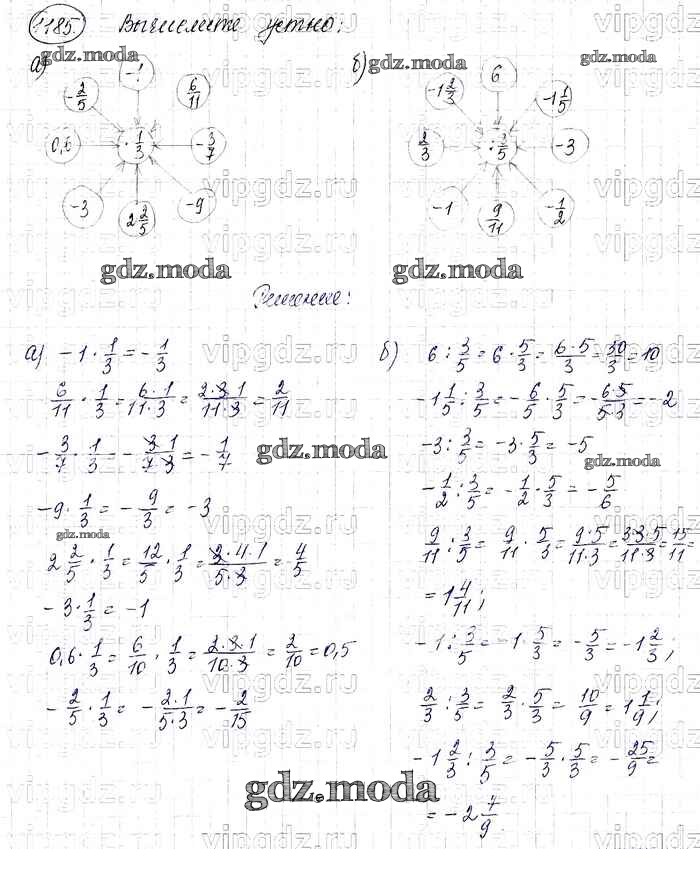 1185. Вычислите устно:
а)
-1
-2/5
6/11
0,6
· 1/3
-3/7
-3
2 2/5
-9
б)
6
-1 2/3
-1 1/5
2/3
: 3/5
-3
-1
9/11
-1/2
gdz.moda
Решение:
а) -1 · 1/3 = -1/3
6/11 · 1/3 = 6·1/11·3 = 2·3·1/11·3 = 2/11
-3/7 · 1/3 = -3·1/7·3 = -1/7
-9 · 1/3 = -9/3 = -3
2 2/5 · 1/3 = 12/5 · 1/3 = 3·4·1/5·3 = 4/5
-3 · 1/3 = -1
0,6 · 1/3 = 6/10 · 1/3 = 2·3·1/10·3 = 2/10 = 0,5
-2/5 · 1/3 = -2·1/5·3 = -2/15
б) 6 : 3/5 = 6 · 5/3 = 6·5/3 = 30/3 = 10
-1 1/5 : 3/5 = -6/5 · 5/3 = -6·5/5·3 = -2
-3 : 3/5 = -3 · 5/3 = -5
-1/2 : 3/5 = -1/2 · 5/3 = -5/6
9/11 : 3/5 = 9/11 · 5/3 = 9·5/11·3 = 3·3·5/11·3 = 15/11 =
= 1 4/11;
-1 : 3/5 = -1 · 5/3 = -5/3 = -1 2/3;
2/3 : 3/5 = 2/3 · 5/3 = 10/9 = 1 1/9;
-1 2/3 : 3/5 = -5/3 · 5/3 = -25/9 =
= -2 7/9.
gdz.moda
vipgdz.ru